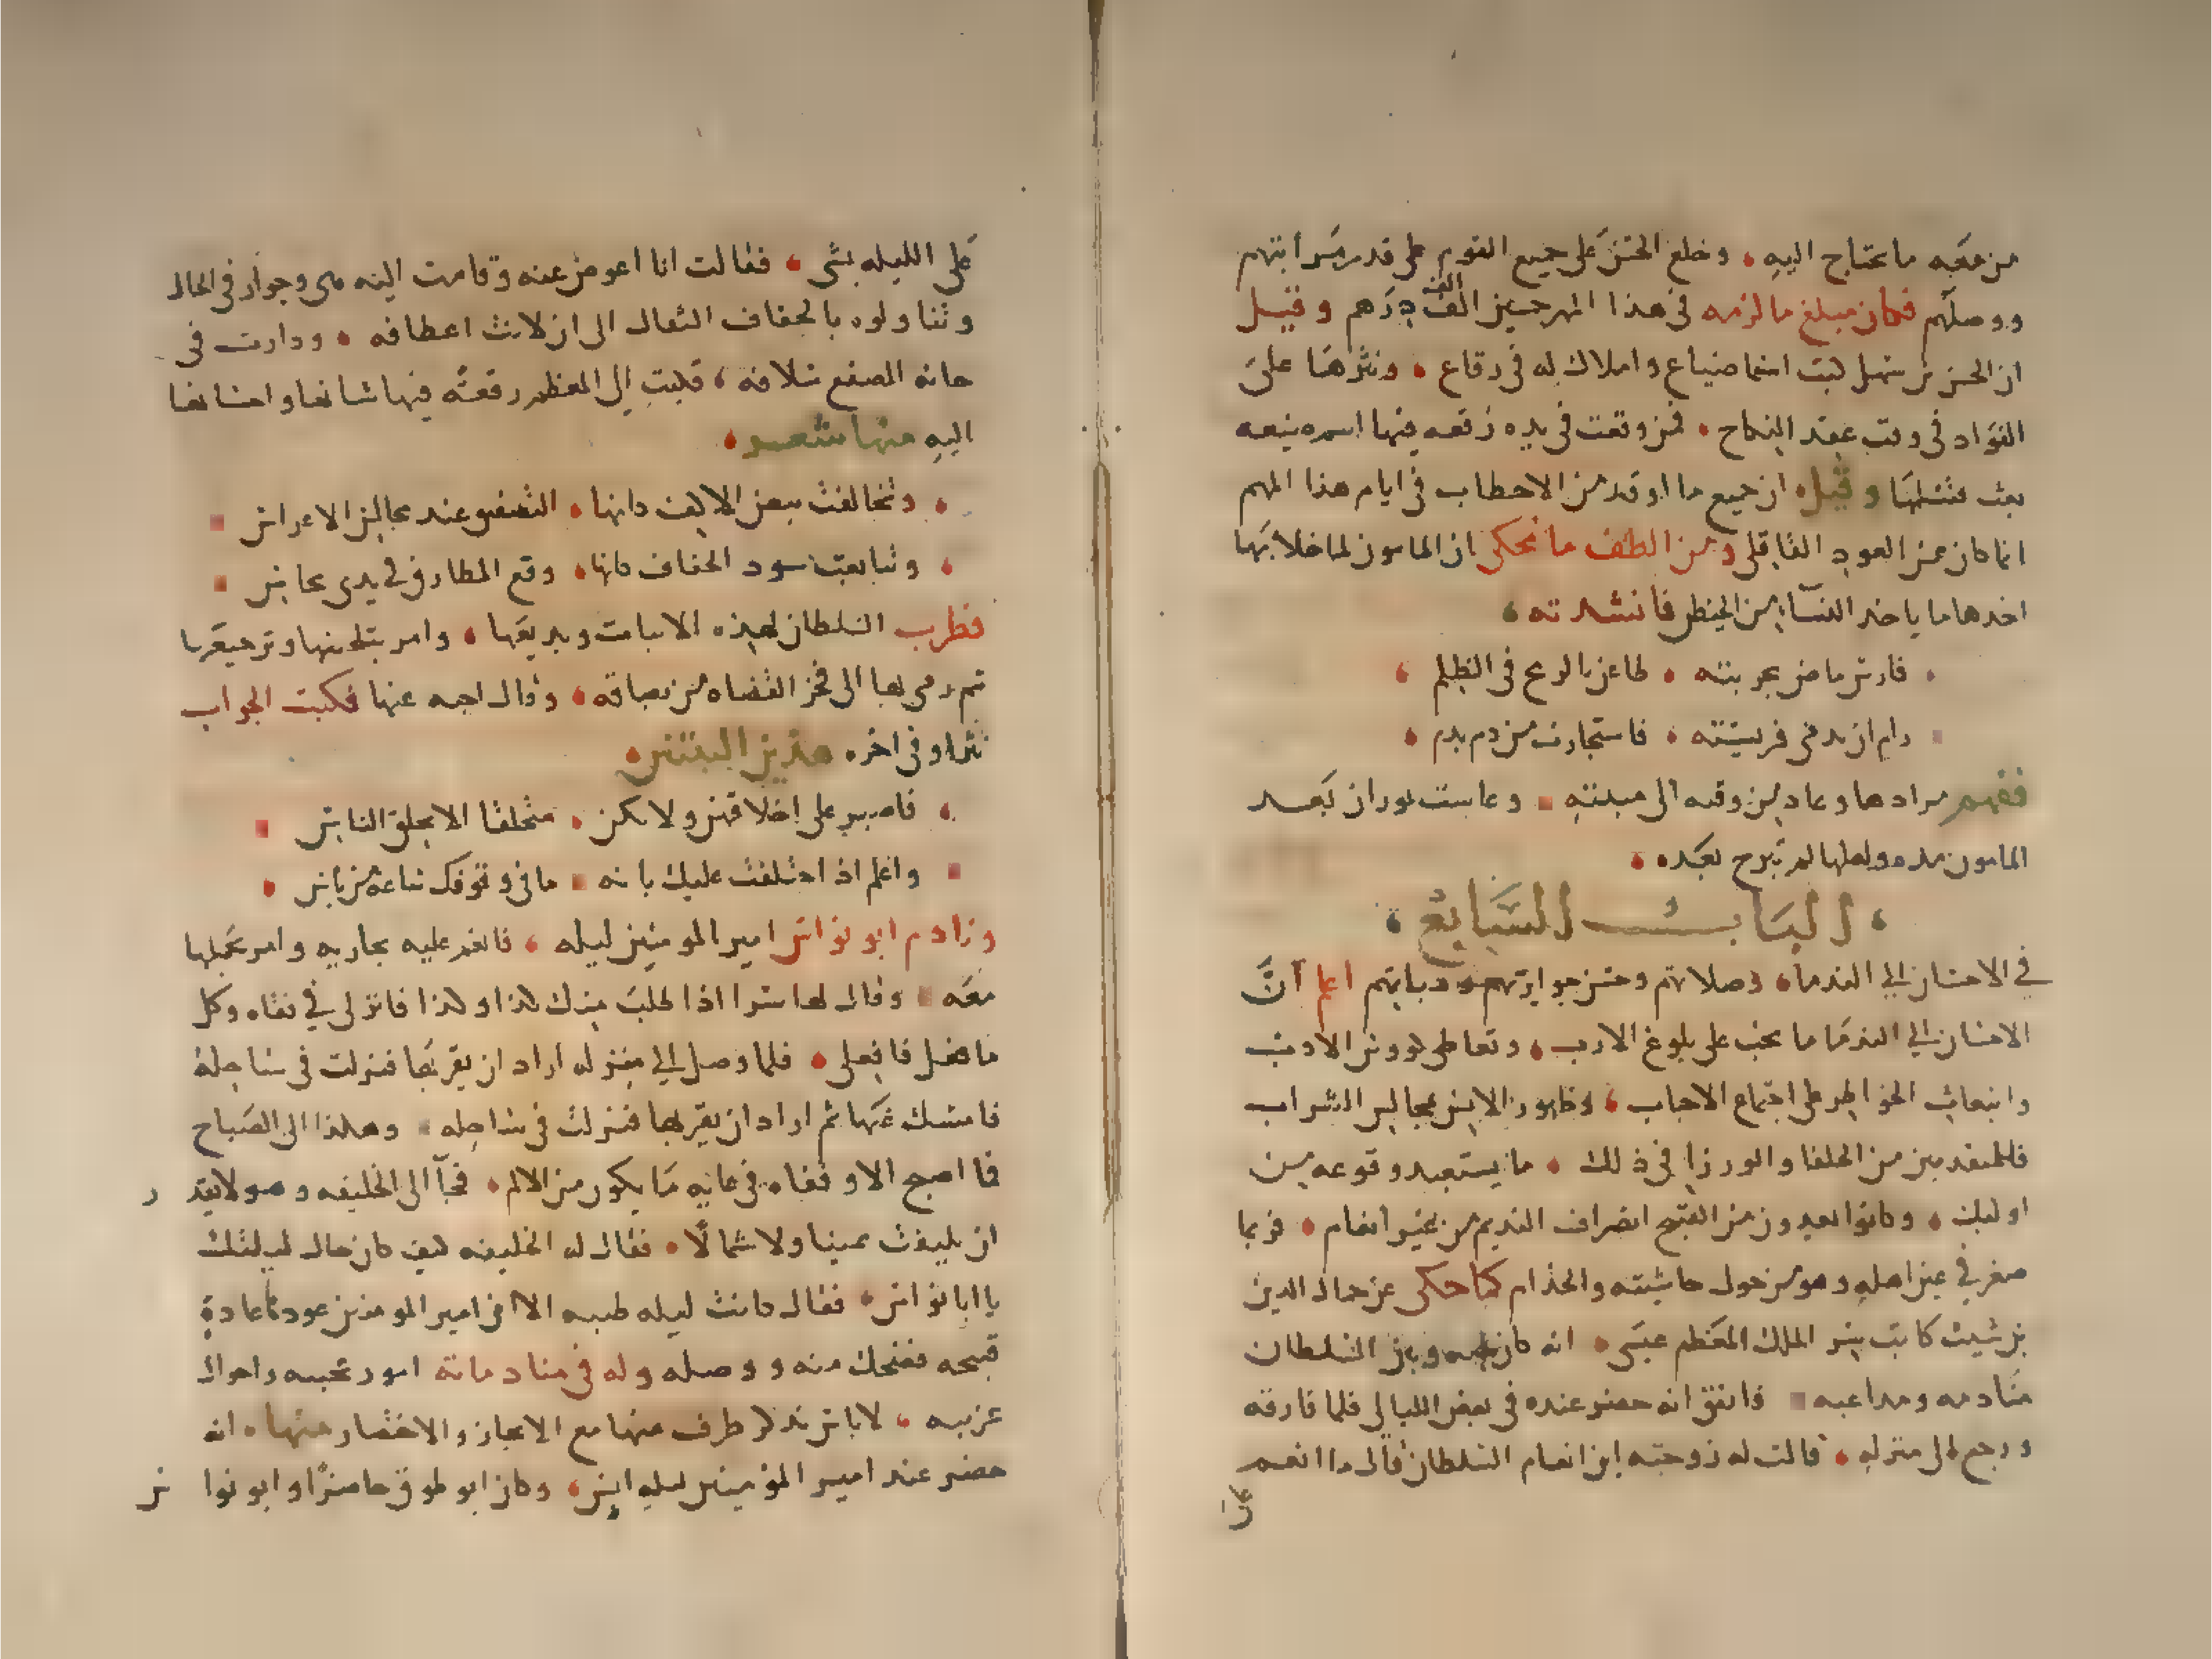 من معه ما يحتاج اليه وخلع الحسن على جميع القوم على قدر مراتبهم
ووصلهم فكان مبلغ ما لزمه في هذا المهم خمسين الف الف درهم وقيل
ان الحسن بن سهل كتب اسما ضياع واملاك له في رقاع ونثرها على
القواد في وقت عقد النكاح فمن وقعت في يده رقعه فيها اسم ضيعه
بعث فتسلمها وقيل ان جميع ما اوقد من الاحطاب في ايام هذا المهم
انما كان من العود القاقلي ومن الطف ما يحكى ان المامون لما خلا بها
اخدها ما ياخد النسآ من الحيض فانشدته
فارس ماض بحربته طاعن بالرمح في الظلم
رام ان يدمي فريسته فاستجارت من دم بدم
ففهم مرادها وعاد من وقته الى مبيته وعاشت بوران بعد
المامون مده ولعلها لم تبرح بعده
الباب السابع
في الاحسان الي الندما وصلاتهم وحسن جوايزهم وهباتهم اعلم ان
الاحسان الي الندما مما يحث على بلوغ الارب وتعاطي كووس الادب
وانبعاث الخواطر على اجتماع الاحباب وظهور الانس بمجالس الشراب
فللمتقدمين من الخلفا والوزرا في ذلك ما يستبعد وقوعه من
اوليك وكانوا يعدون من القبح انصراف النديم من غير انعام فربما
صغر في عين اهله وهو من حول حاشيته والخدام كما حكى عن جمال الدين
بن شيث كاتب سر الملك المعظم عيسى انه كان بينه وبين السلطان
منادمه ومداعبه فاتفق انه حضر عنده في بعض الليالي فلما فارقه
ورجع الى منزله قالت له زوجته اين انعام السلطان قال ما انعم
علي
على الليله بشي فقالت انا اعوض عنه وقامت اليه هي وجوار في الحال
وتناولوه بالخفاف الثقال الى ان لانت اعطافه ودارت في
حانه الصفع سلافه فكتب الى المعظم رقعة فيها شانها واحسانها
اليه منها شعر
وتخالفت بيض الاكف كانها التصفيق عند مجالس الاعراس
وتتابعت سود الخفاف كانها وقع المطارق في يدي نحاس
فطرب السلطان لهذه الابيات وبديعها وامر بتلحينها وترجيعها
ثم رمى بها الى فخر القضاه بن بصاقه وقال اجبه عنها فكتب الجواب
نثرا وفي اخره هذين البيتين
فاصبر على اخلاقهن ولا تكن متخلقا الا بخلق الناس
واعلم اذا اختلفت عليك بانه ما في وقوفك ساعة من باس
ونادم ابو نواس امير المومنين ليله فانعم عليه بجاريه وامر بحملها
معه وقال لها سرا اذا طلب منك كذا وكذا فانزلي في قفاه وكل
ما فعل فافعلي فلما وصل الي منزله اراد ان يقربها فنزلت في ساجله
فامسك عنها ثم اراد ان يقربها فنزلت في ساجله وهكذا الى الصباح
فما اصبح الا وقفاه في غايه ما يكون من الالم فجآ الى الخليفه وهو لا يقدر
ان يلتفت يمينا ولا شمالا فقال له الخليفه كيف كان حال ليلتك
يا ابا نواس فقال كانت ليله طيبه الا ان امير المومنين عودها عادة
قبيحه فضحك منه ووصله وله في منادماته امور عجيبه واحوال
غريبه لا باس بذكر طرف منها مع الايجاز والاختصار منها انه
حضر عند امير المومنين ليله انس وكان ابو طوق حاضرا وابو نواس